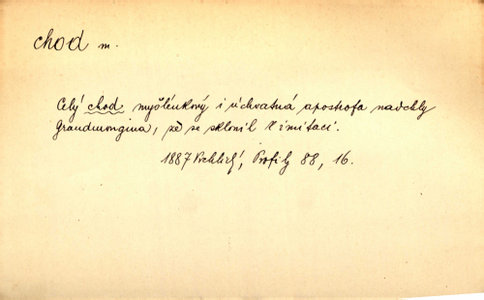 chod m.
Celý chod myšlénkový i úchvatná apostrofa nadchly
Grandmougina, že se sklonil k imitaci.
1887 Vrchlický, Profily 88, 16.